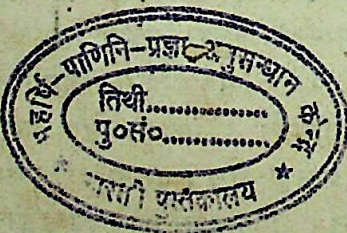 महर्षि-पाणिनि-प्रज्ञा-अनुसन्धान केन्द्र
तिथी................
पु०सं०.............
* पुस्तकालय *